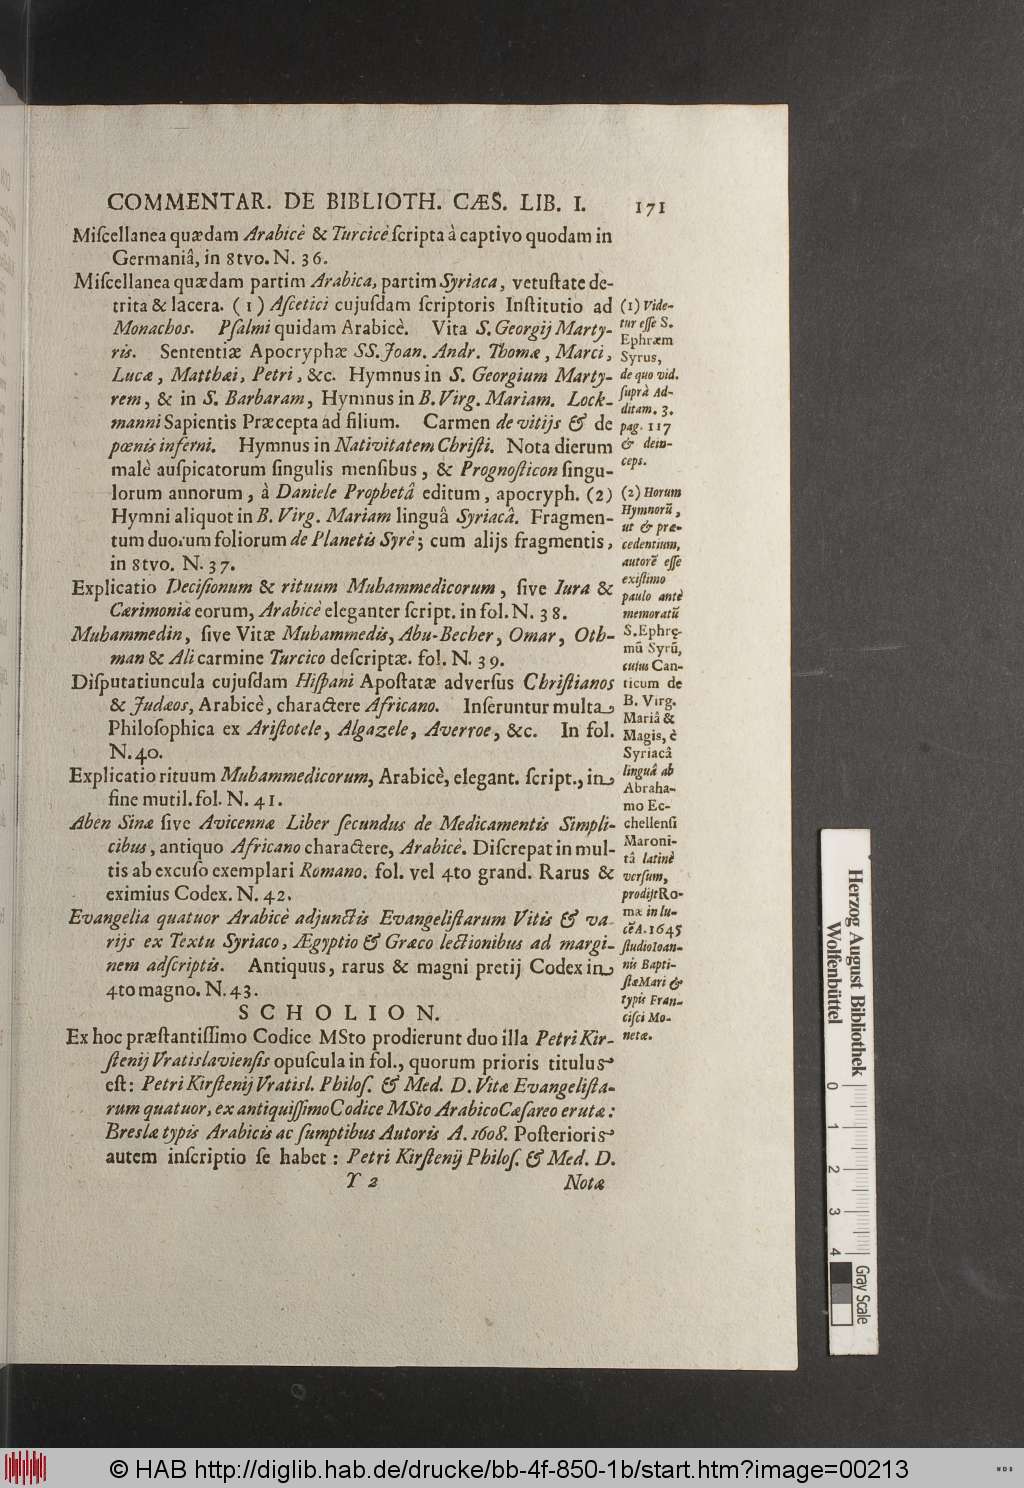 COMMENTAR. DE BIBLIOTH. CÆS. LIB. I. 171
Miſcellanea quædam Arabicè & Turcicè ſcripta à captivo quodam in
Germaniâ, in 8tvo. N. 36.
Miſcellanea quædam partim Arabica, partim Syriaca, vetuſtate de-
trita & lacera. (1) Aſcetici cujuſdam ſcriptoris Inſtitutio ad
Monachos. Pſalmi quidam Arabicè. Vita S. Georgij Marty-
ris. Sententiæ Apocryphæ SS. Joan. Andr. Thomæ, Marci,
Lucæ, Matthæi, Petri, &c. Hymnus in S. Georgium Marty-
rem, & in S. Barbaram, Hymnus in B. Virg. Mariam. Lock-
manni Sapientis Præcepta ad filium. Carmen de vitijs & de
pœnis inferni. Hymnus in Nativitatem Chriſti. Nota dierum
malè auſpicatorum ſingulis menſibus, & Prognoſticon ſingu-
lorum annorum, à Daniele Prophetâ editum, apocryph. (2)
Hymni aliquot in B. Virg. Mariam linguâ Syriacâ. Fragmen-
tum duorum foliorum de Planetis Syrè; cum alijs fragmentis,
in 8tvo. N. 37.
Explicatio Deciſionum & rituum Muhammedicorum, ſive Iura &
Cærimoniæ eorum, Arabicè eleganter ſcript. in fol. N. 38.
Muhammedin, ſive Vitæ Muhammedis, Abu-Becher, Omar, Oth-
man & Ali carmine Turcico deſcriptæ. fol. N. 39.
Diſputatiuncula cujuſdam Hiſpani Apoſtatæ adverſus Chriſtianos
& Judæos, Arabicè, charactere Africano. Inſeruntur multa
Philoſophica ex Ariſtotele, Algazele, Averroe, &c. In fol.
N. 40.
Explicatio rituum Muhammedicorum, Arabicè, elegant. ſcript., in
fine mutil. fol. N. 41.
Aben Sinæ ſive Avicennæ Liber ſecundus de Medicamentis Simpli-
cibus, antiquo Africano charactere, Arabicè. Diſcrepat in mul-
tis ab excuſo exemplari Romano. fol. vel 4to grand. Rarus &
eximius Codex. N. 42.
Evangelia quatuor Arabicè adjunctis Evangeliſtarum Vitis & va-
rijs ex Textu Syriaco, Ægyptio & Græco lectionibus ad margi-
nem adſcriptis. Antiquus, rarus & magni pretij Codex in
4to magno. N. 43.
SCHOLION.
Ex hoc præſtantiſſimo Codice MSto prodierunt duo illa Petri Kir-
ſtenij Vratislavienſis opuſcula in fol., quorum prioris titulus
eſt: Petri Kirſtenij Vratisl. Philoſ. & Med. D. Vitæ Evangeliſta-
rum quatuor, ex antiquiſſimo Codice MSto Arabico Cæſareo erutæ:
Breslæ typis Arabicis ac ſumptibus Autoris A. 1608. Poſterioris
autem inſcriptio ſe habet: Petri Kirſtenij Philoſ. & Med. D.
Y 2 Notæ
(1) Vide-
tur eſſe S.
Ephræm
Syrus,
de quo vid.
ſuprà Ad-
ditam. 3.
pag. 117
& dein-
ceps.
(2) Horum
Hymnorū,
ut & præ-
cedentium,
autorē eſſe
exiſtimo
paulo antè
memoratū
S. Ephrę-
mū Syrū,
cujus Can-
ticum de
B. Virg.
Mariâ &
Magis, è
Syriacâ
linguâ ab
Abraha-
mo Ec-
chellenſi
Maroni-
tâ latinè
verſum,
prodijt Ro-
mæ in lu-
cē A. 1645
ſtudio Ioan-
nis Bapti-
ſtæ Mari &
typis Fran-
ciſci Mo-
netæ.
Herzog August Bibliothek
Wolfenbüttel
0 1 2 3 4
Gray Scale
© HAB http://diglib.hab.de/drucke/bb-4f-850-1b/start.htm?image=00213